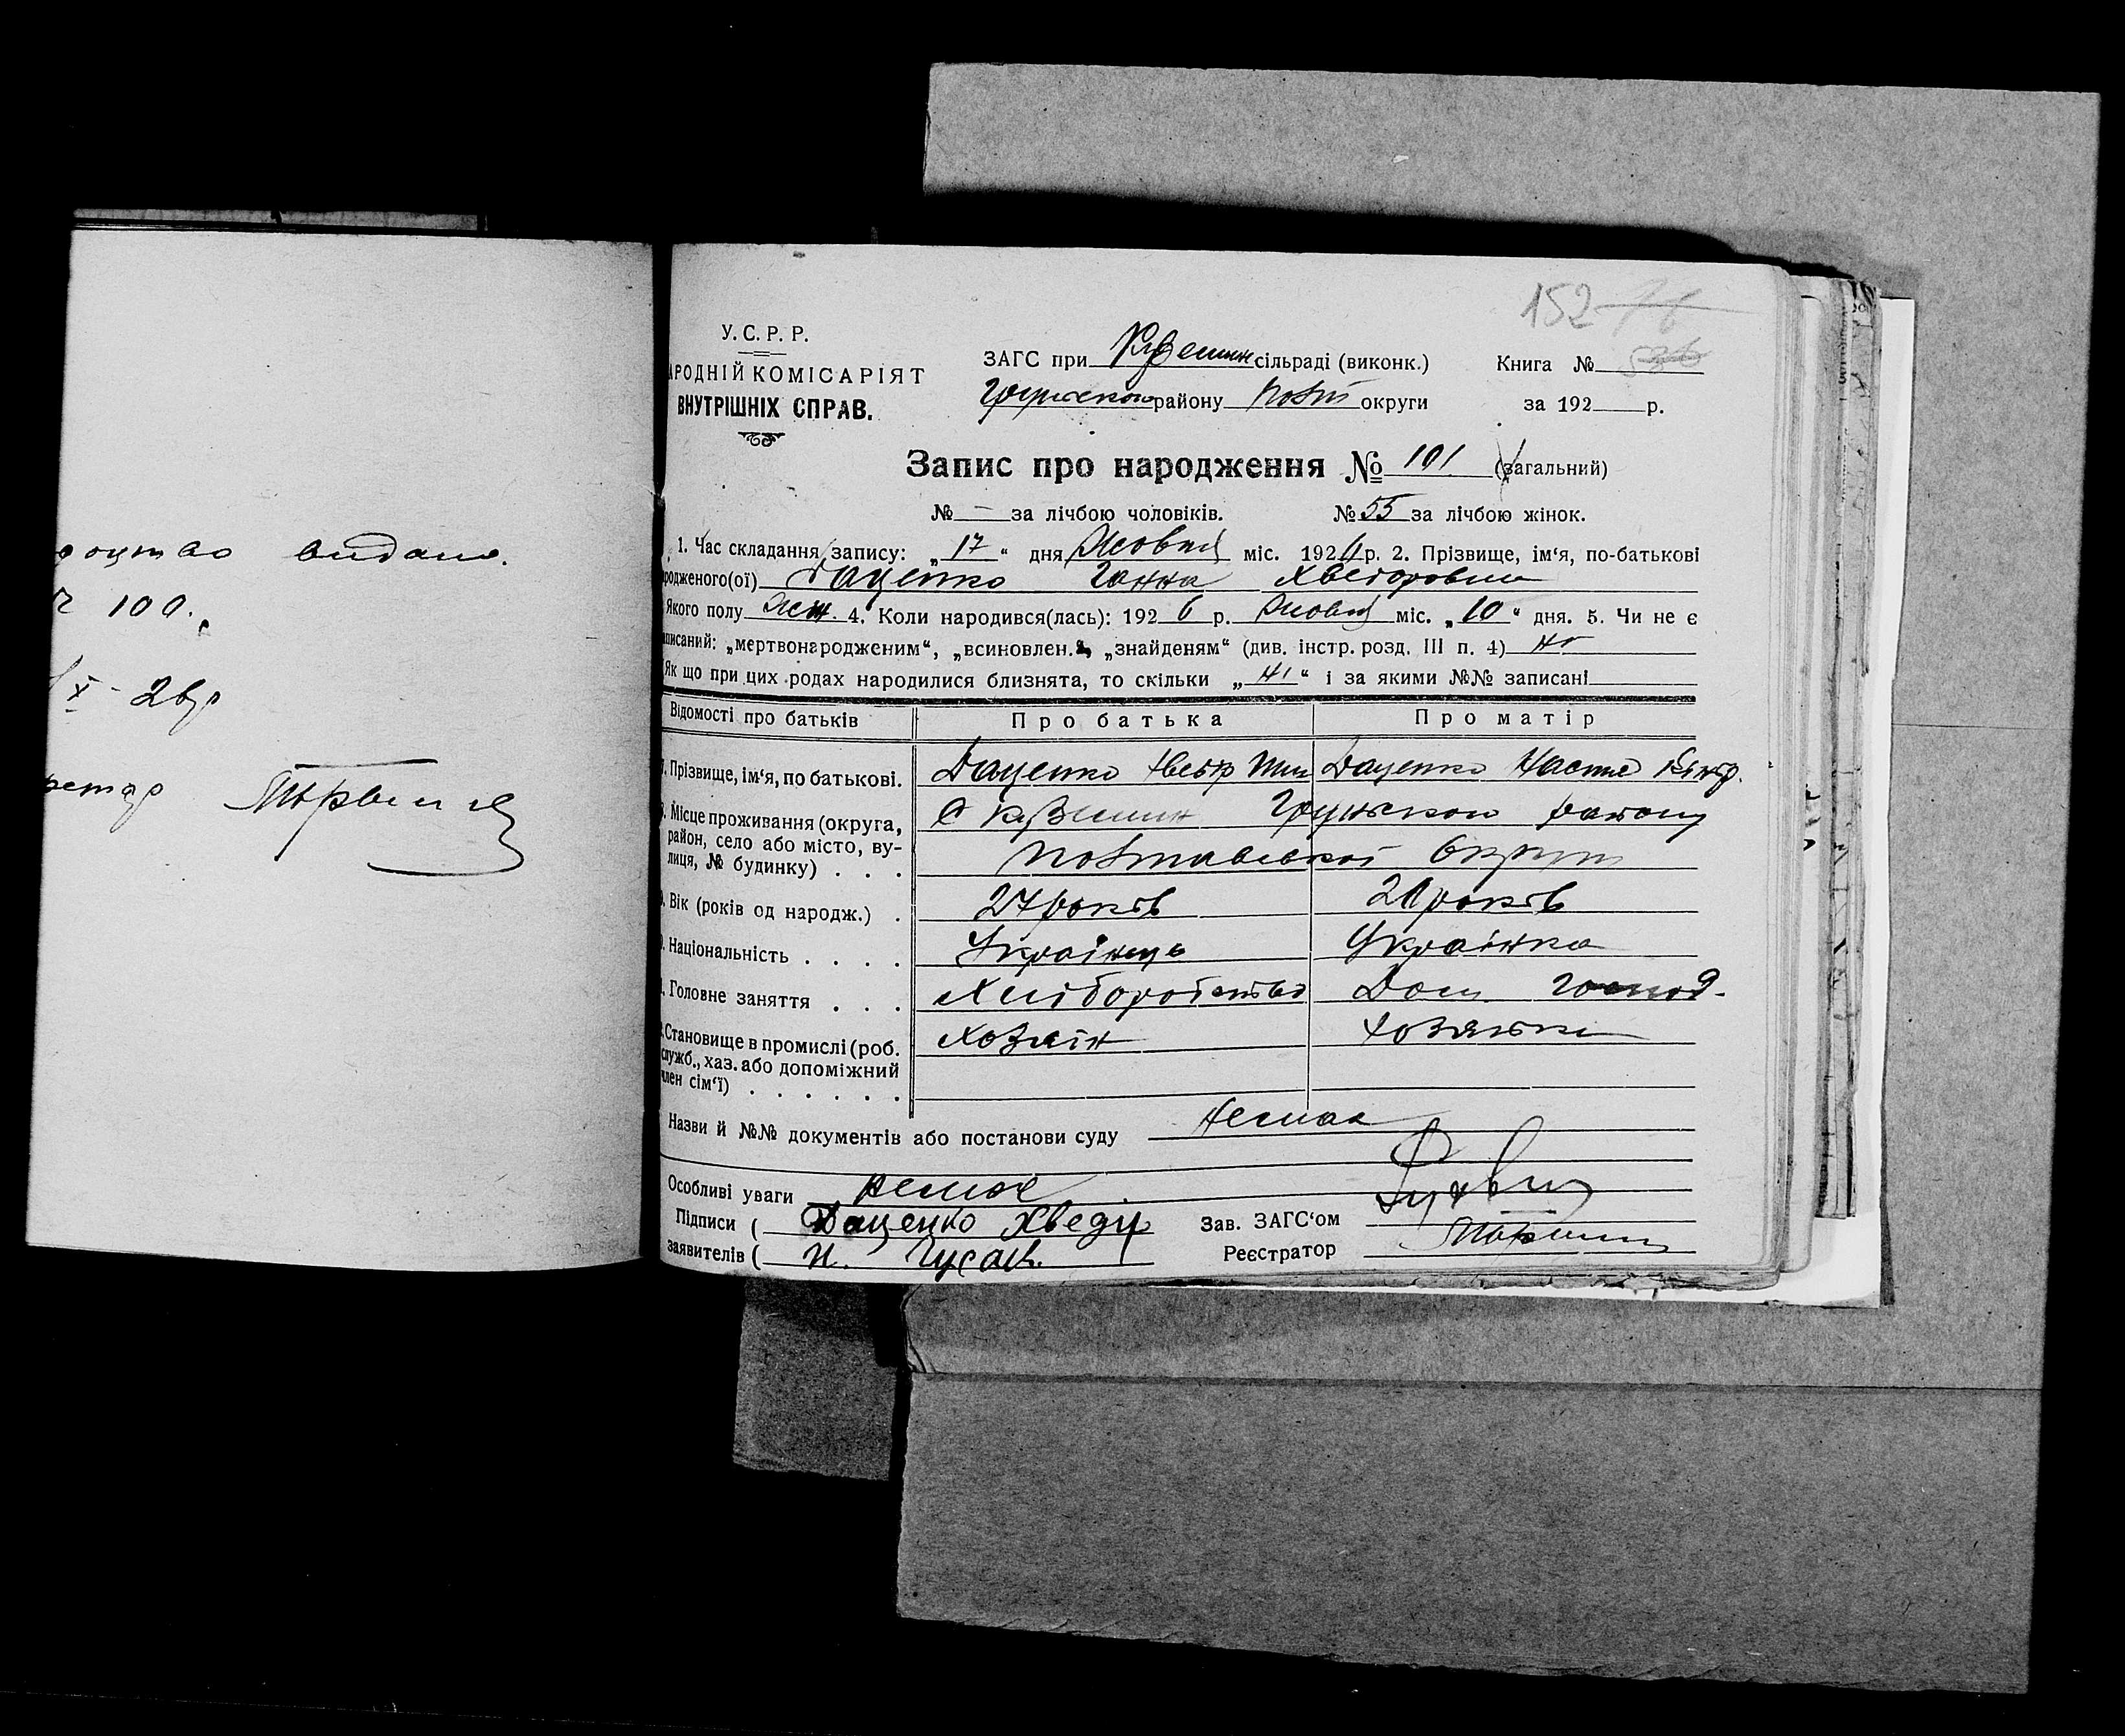 видано.
№ 100.
X - 26 р
152
У.С.Р.Р.
АРОДНІЙ КОМІСАРІЯТ
ВНУТРІШНІХ СПРАВ.
ЗАГС при сільраді (виконк.)
району Полт округи
Книга №
за 192 р.
Запис про народження № 101 (загальний)
№ — за лічбою чоловіків. № 55 за лічбою жінок.
1. Час складання запису: „17“ дня Жовтня міс. 1926 р. 2. Прізвище, ім‘я, по-батькові
родженого(ої) Даценко Ганна Хведоровна
Якого полу Жін. 4. Коли народився(лась): 1926 р. Жовтня міс. „10“ дня. 5. Чи не є
аписаний: „мертвонародженим“, „всиновлен.“, „знайденям“ (див. інстр. розд. III п. 4) ні
Як що при цих родах народилися близнята, то скільки „ні“ і за якими №№ записані
Відомості про батьків Про батька Про матір
Прізвище, ім‘я, по батькові. Даценко Хведір Даценко Настя
Місце проживання (округа, район, село або місто, вулиця, № будинку) . . . С району
Полтавської Округи
Вік (років од народж.) . 27 років 20 років
Національність . . . . Українець Українка
Головне заняття . . . Хліборобство Дом. господ.
Становище в промислі (роб. служб., хаз. або допоміжний член сім‘ї) . . . . . . Хозяїн Хозяйка
Назви й №№ документів або постанови суду Немає
Особливі уваги Немає
Підписи ( Даценко Хведір
заявителів ( Н. Гусак.
Зав. ЗАГС‘ом
Реєстратор